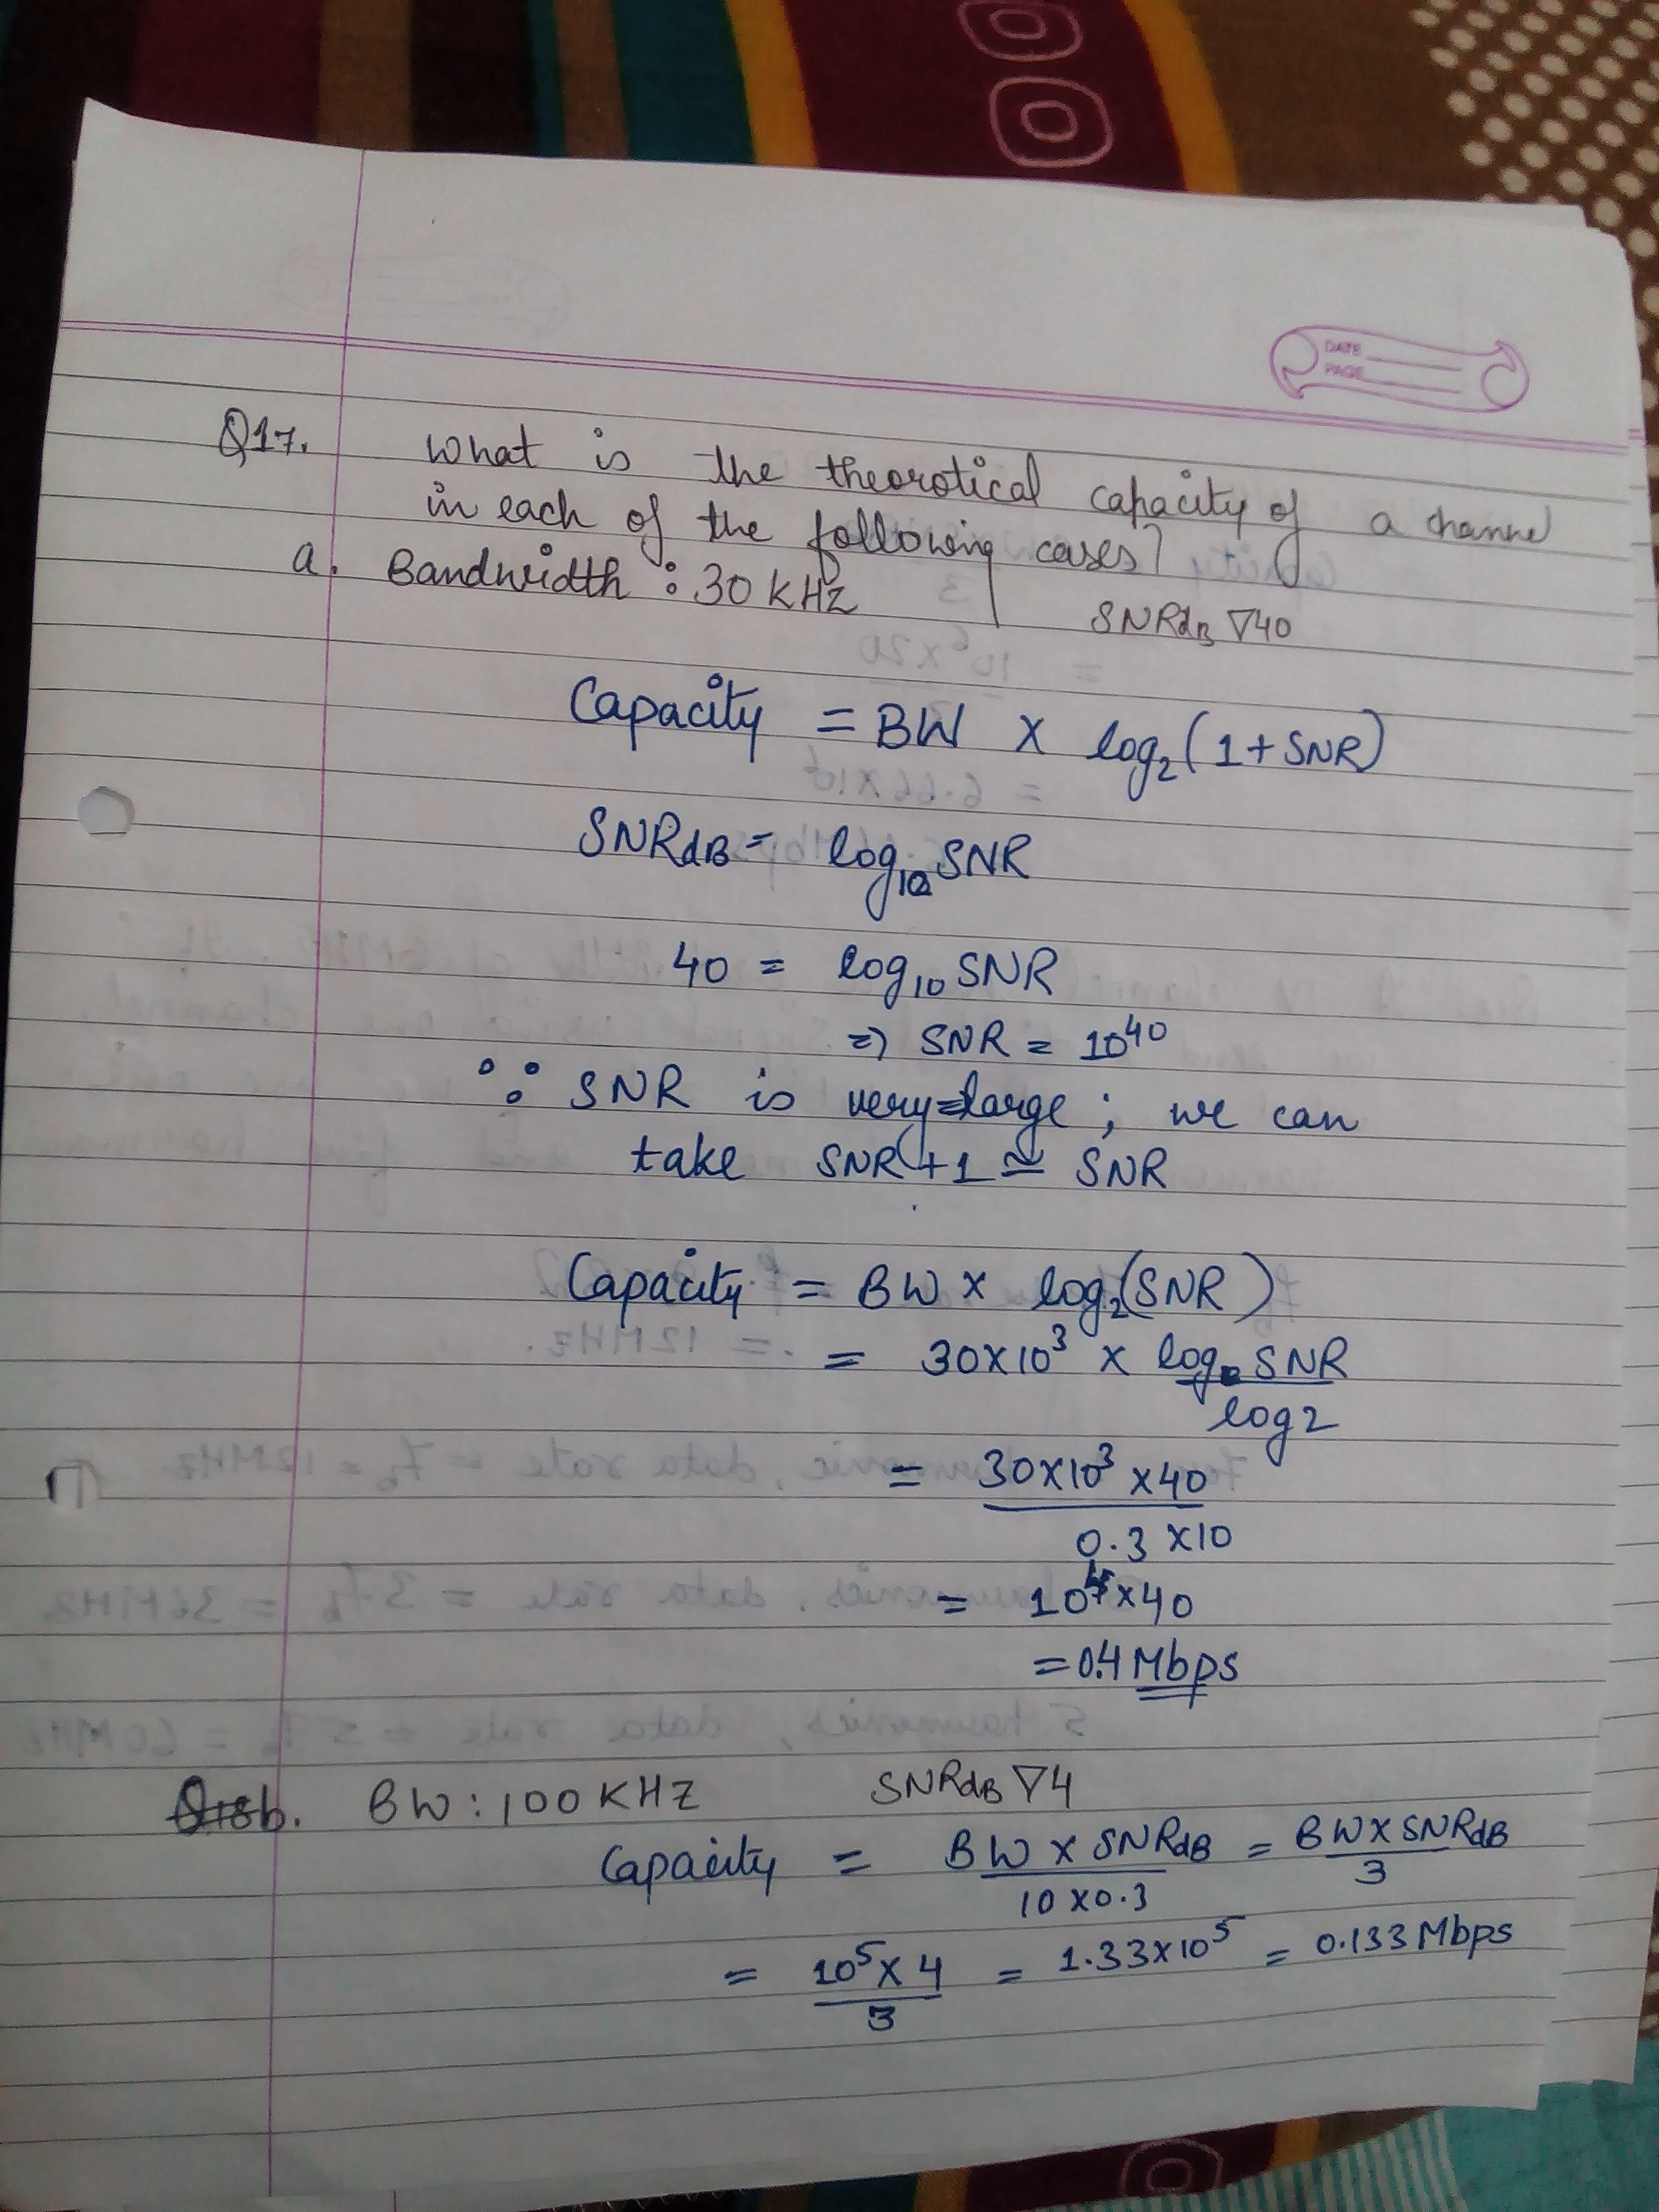 DATE
PAGE
Q17. What is the theorotical capacity of a channel
in each of the following cases?
a. Bandwidth : 30 KHZ SNRdB ▽40
Capacity = BW X log₂(1+SNR)
SNRdB = log₁₀ SNR
40 = log₁₀ SNR
=> SNR = 10⁴⁰
∵ SNR is very large ; we can
take SNR+1 ≃ SNR
Capacity = BW X log₂(SNR)
= 30X10³ X log SNR
log2
= 30X10³ X40
0.3 X10
= 10⁴X40
=0.4 Mbps
b. BW : 100 KHZ SNRdB ▽4
Capacity = BW X SNRdB = BWXSNRdB
10 X0.3 3
= 10⁵X 4 = 1.33X10⁵ = 0.133 Mbps
3